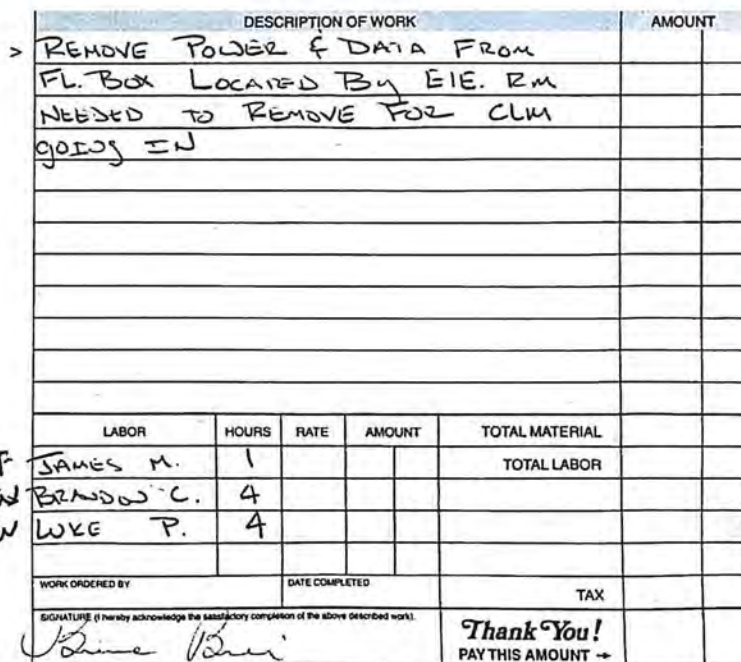 DESCRIPTION OF WORK AMOUNT
> REMOVE POWER & DATA FROM
FL. BOX LOCATED By ElE. RM
NEEDED TO REMOVE FOR CLM
goING IN
LABOR HOURS RATE AMOUNT TOTAL MATERIAL
F JAMES M. 1 TOTAL LABOR
W BRANDON C. 4
W LUKE P. 4
WORK ORDERED BY DATE COMPLETED TAX
SIGNATURE (I hereby acknowledge the satisfactory completion of the above described work).
Thank You!
PAY THIS AMOUNT →